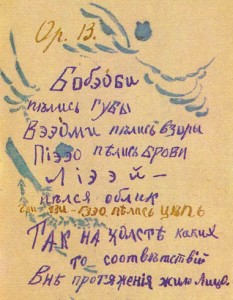 Ор. 13.
Бобэоби
пѣлись губы
Вээоми пѣлись взоры
Піээо пѣлись брови
Ліээй —
пѣлся облик
гзи-гзи-гзэо пѣлась цѣпь
Так на холстѣ каких
то соотвѣтствій
Внѣ протяженія жило Лицо.